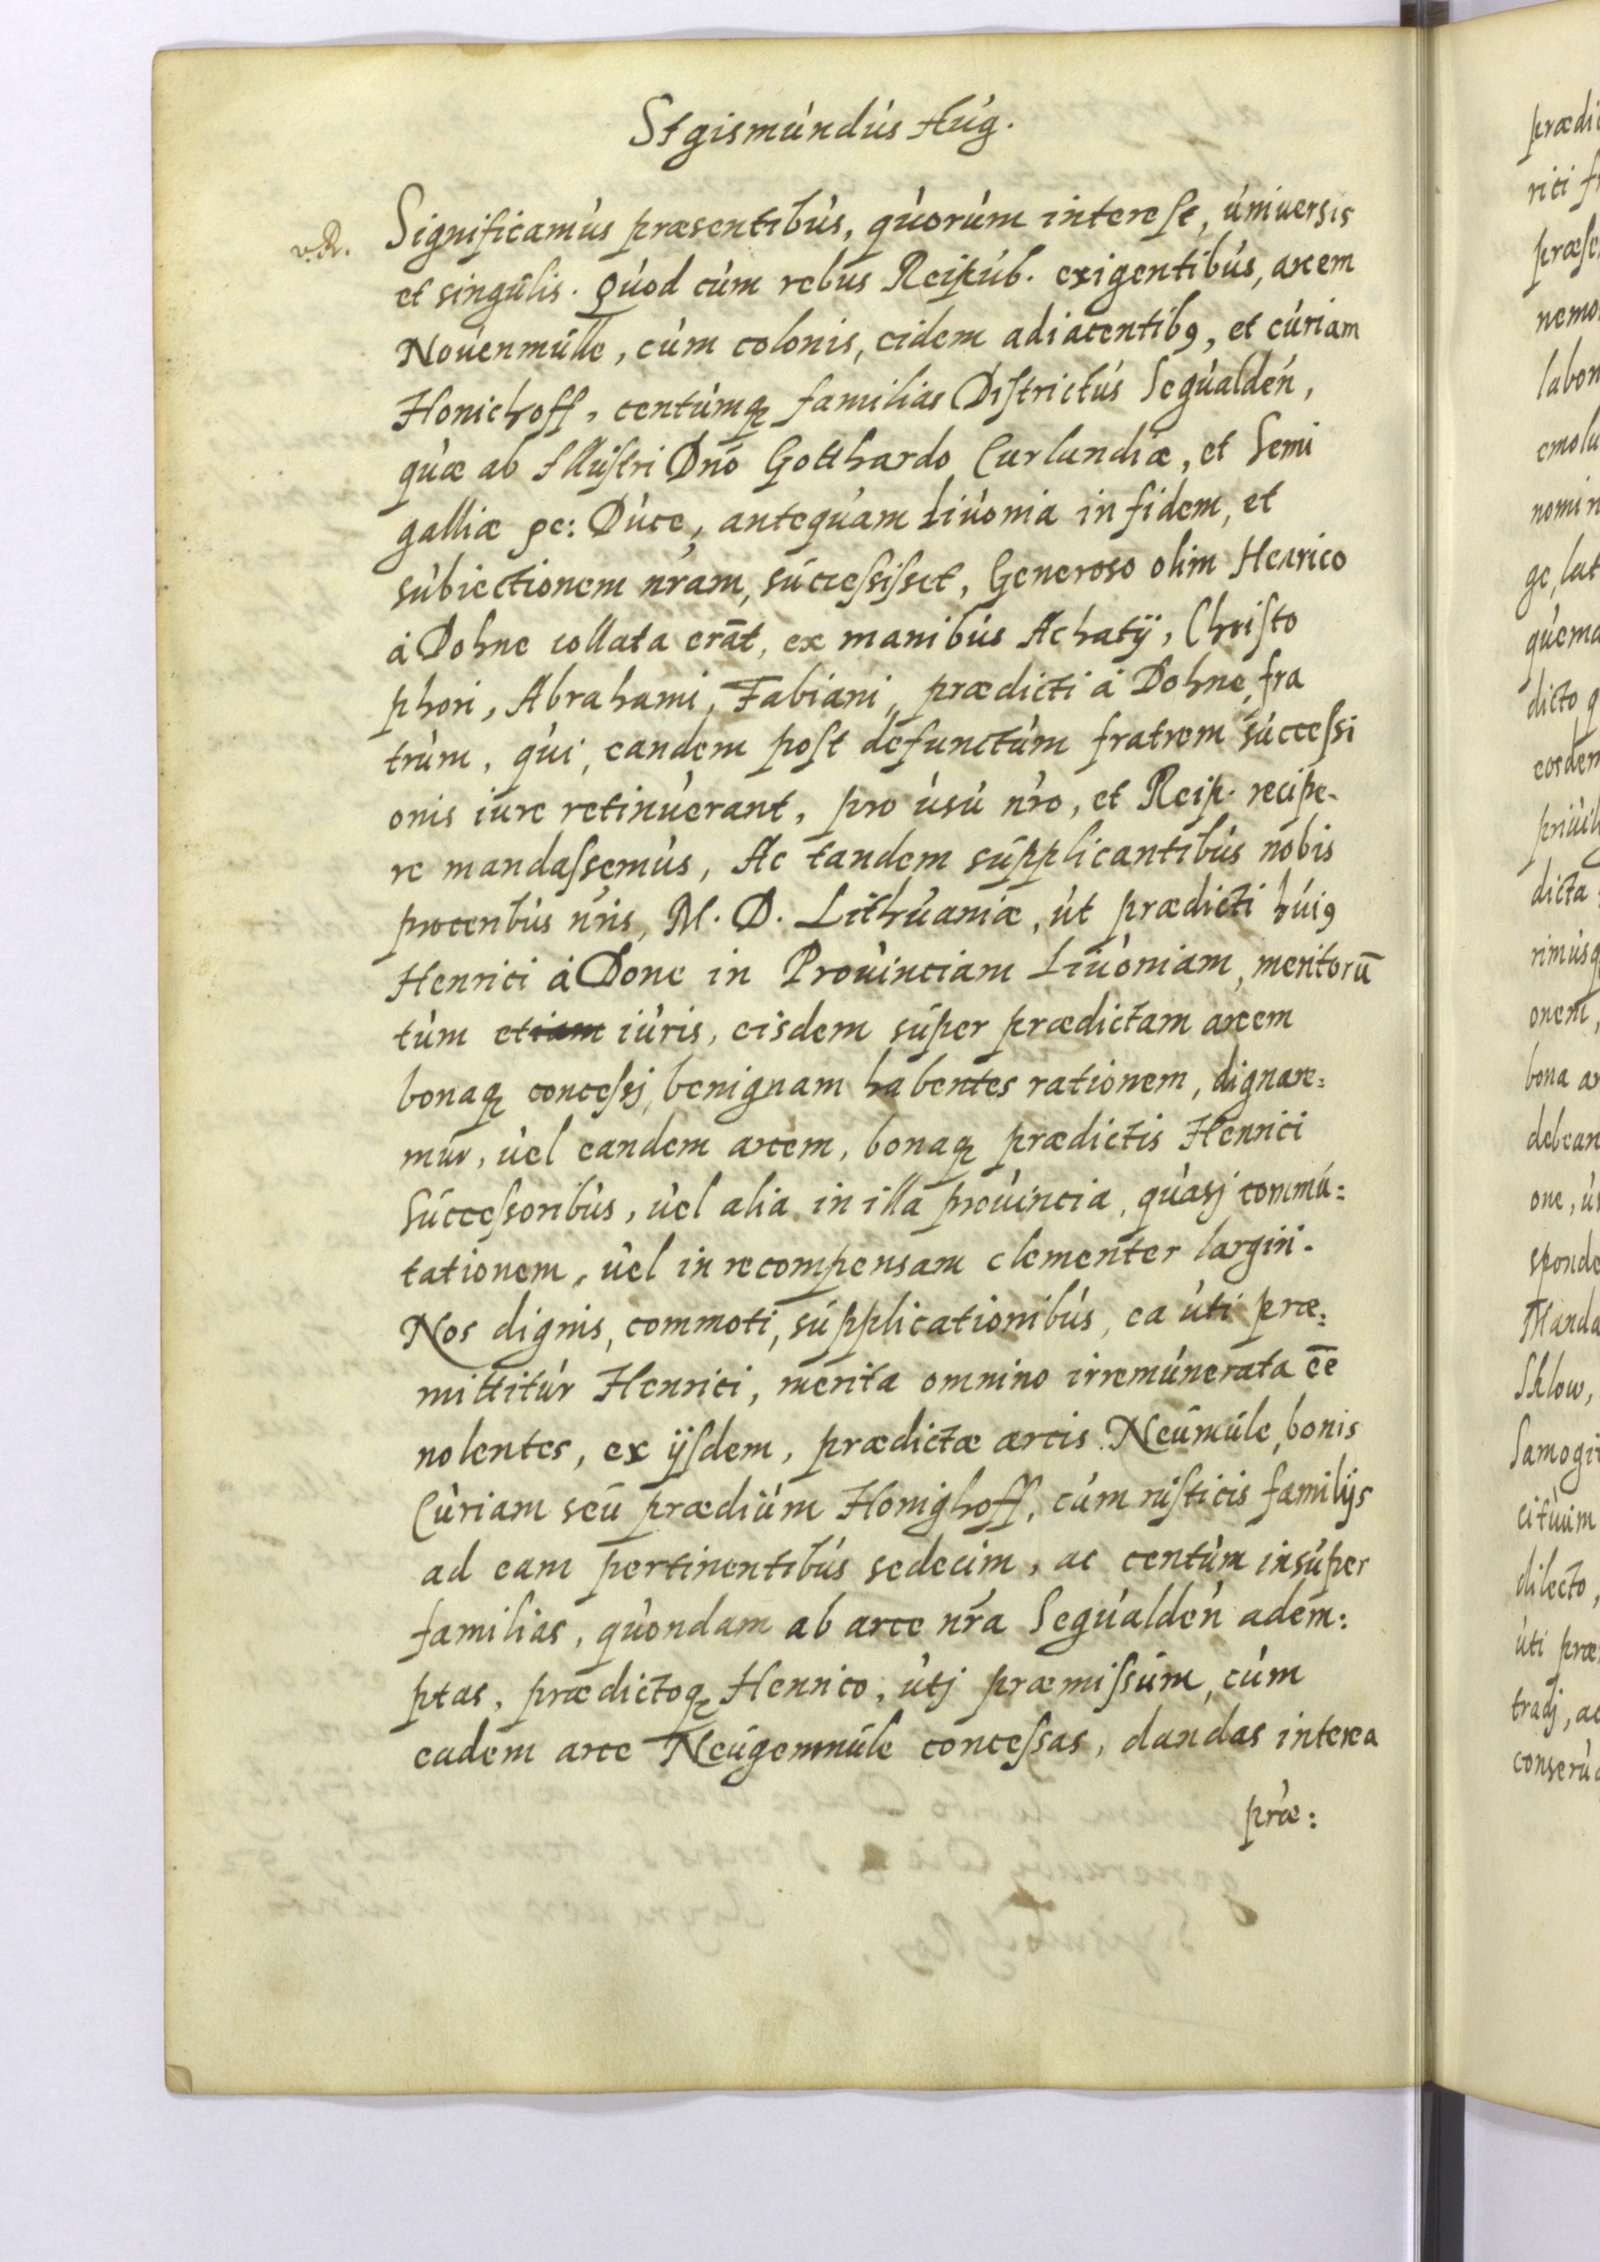 SIgismúndús Aúg.
v. R.
Significamús præsentibús, qúorúm interest, úniuersis
et singúlis. Qúod cúm rebus Reipúb. exigentibús, arcem
Noúenmúlle, cúm colonis, eidem adiacentibꝰ, et cúriam
Honichoff, centúmqꝫ familias Districtús Segúalden,
qúæ ab Illústri Dnō Gotthardo Curlandiæ, et Semi
galliæ ꝛc: Dúce, anteqúam Liúonia in fidem, et
súbiectionem nr̄am, súccessisset, Generoso olim Henrico
á Dohne collata erāt, ex manibús Achatÿ, Christo
phori, Abrahami, Fabiani, prædicti á Dohne, fra
trúm, qúi, eandem post defunctúm fratrem súccessi
onis iure retinúerant, pro úsú nr̄o, et Reip. recipe-
re mandassemús, Ac tandem súpplicantibús nobis
procenbús nr̄is, M. D. Lithúaniæ, út prædicti húiꝰ
Henrici á Done in Proúinciam Liúoniam, meritorū
túm etiam iúris, eisdem súper prædictam arcem
bonaqꝫ concessj, benignam habentes rationem, dignare=
múr, úel eandem arcem, bonaqꝫ prædictis Henrici
Súccessoribús, úel alia in illa proúincia, qúasj commú=
tationem, úel in recompensam clementer largiri.
Nos dignis, commoti, súpplicationibús, ea úti præ=
mittitúr Henrici, merita omnino irremúnerata ēē
nolentes, ex ÿsdem, prædictæ arcis Neúmúle, bonis
Cúriam seú prædiúm Honighoff, cúm rústicis familÿs
ad eam pertinentibús sedecim, ac centúm insúper
familias, qúondam ab arce nr̄a Segúalden adem=
ptas, prædictoqꝫ Henrico, útj præmissúm, cúm
eadem arce Neúgemmúle concessas, dandas interea
præ:
prædic
rici fr
præse
nemo
labor
emolu
nomin
ge, lut
qúema
dicto q
eosdem
priúil
dicta
rimúsq
onem,
bona ar
debean
one, ú
sponde
Manda
Sklow,
Samogit
citúúm
dilecto,
úti præ
tradj, ac
conserúa